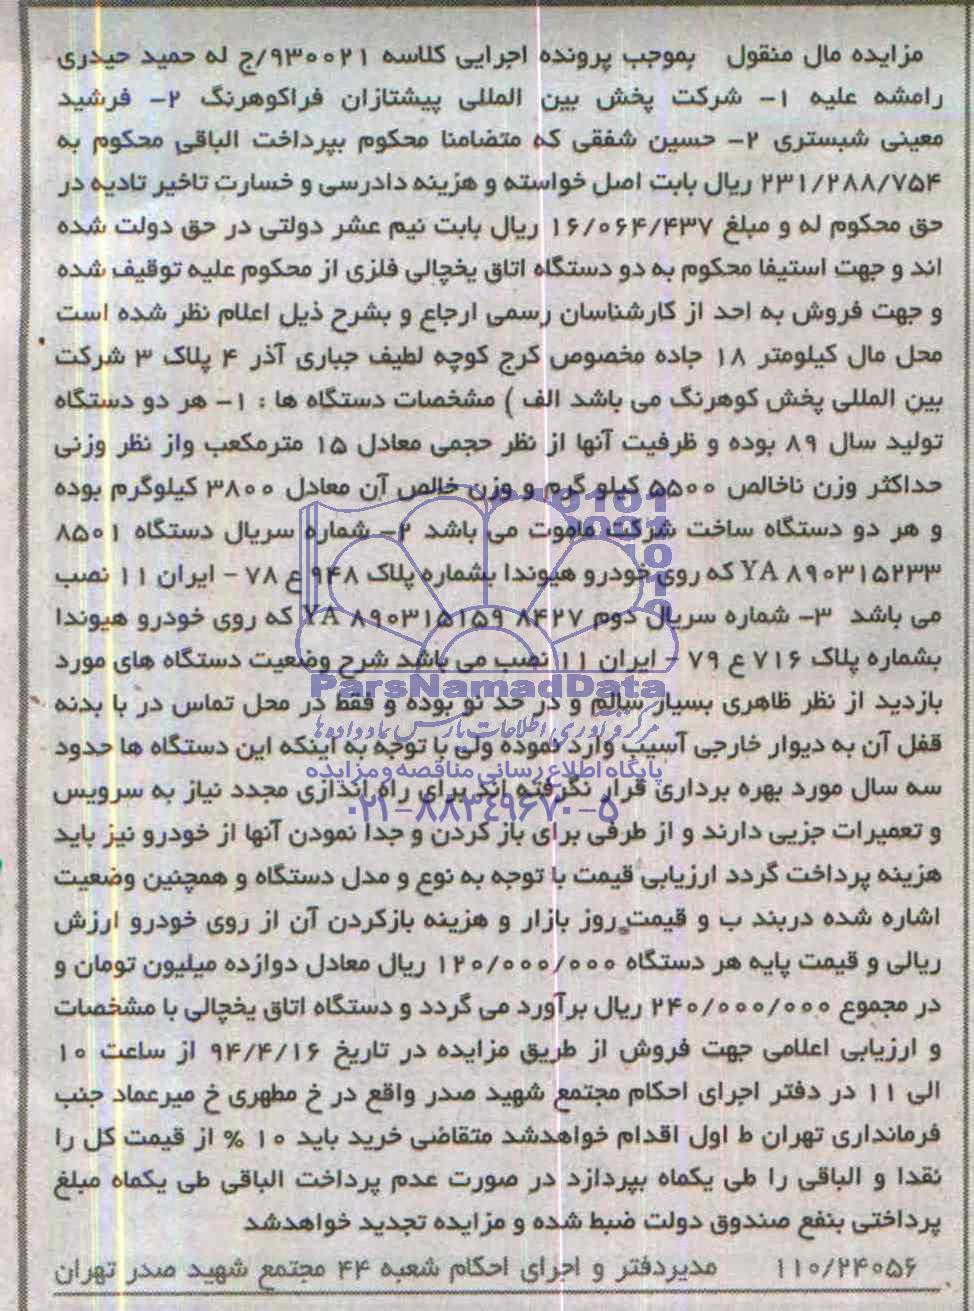 مزایده مال منقول بموجب پرونده اجرایی کلاسه ۹۳۰۰۲۱/ج له حمید حیدری
رامشه علیه ۱- شرکت پخش بین المللی پیشتازان فراکوهرنگ ۲- فرشید
معینی شبستری ۲- حسین شفقی که متضامنا محکوم بپرداخت الباقی محکوم به
۲۳۱/۲۸۸/۷۵۴ ریال بابت اصل خواسته و هزینه دادرسی و خسارت تاخیر تادیه در
حق محکوم له و مبلغ ۱۶/۰۶۴/۴۳۷ ریال بابت نیم عشر دولتی در حق دولت شده
اند و جهت استیفا محکوم به دو دستگاه اتاق یخچالی فلزی از محکوم علیه توقیف شده
و جهت فروش به احد از کارشناسان رسمی ارجاع و بشرح ذیل اعلام نظر شده است
محل مال کیلومتر ۱۸ جاده مخصوص کرج کوچه لطیف جباری آذر ۴ پلاک ۳ شرکت
بین المللی پخش کوهرنگ می باشد الف ) مشخصات دستگاه ها : ۱- هر دو دستگاه
تولید سال ۸۹ بوده و ظرفیت آنها از نظر حجمی معادل ۱۵ مترمکعب واز نظر وزنی
حداکثر وزن ناخالص ۵۵۰۰ کیلو گرم و وزن خالص آن معادل ۳۸۰۰ کیلوگرم بوده
و هر دو دستگاه ساخت شرکت ماموت می باشد ۲- شماره سریال دستگاه ۸۵۰۱
YA ۸۹۰۳۱۵۲۳۳ که روی خودرو هیوندا بشماره پلاک ۹۴۸ ع ۷۸ - ایران ۱۱ نصب
می باشد ۳- شماره سریال دوم ۸۴۲۷ YA ۸۹۰۳۱۵۱۵۹ که روی خودرو هیوندا
بشماره پلاک ۷۱۶ ع ۷۹ - ایران ۱۱ نصب می باشد شرح وضعیت دستگاه های مورد
بازدید از نظر ظاهری بسیار سالم و در حد نو بوده و فقط در محل تماس در با بدنه
قفل آن به دیوار خارجی آسیب وارد نموده ولی با توجه به اینکه این دستگاه ها حدود
سه سال مورد بهره برداری قرار نگرفته اند برای راه اندازی مجدد نیاز به سرویس
و تعمیرات جزیی دارند و از طرفی برای باز کردن و جدا نمودن آنها از خودرو نیز باید
هزینه پرداخت گردد ارزیابی قیمت با توجه به نوع و مدل دستگاه و همچنین وضعیت
اشاره شده دربند ب و قیمت روز بازار و هزینه بازکردن آن از روی خودرو ارزش
ریالی و قیمت پایه هر دستگاه ۱۲۰/۰۰۰/۰۰۰ ریال معادل دوازده میلیون تومان و
در مجموع ۲۴۰/۰۰۰/۰۰۰ ریال برآورد می گردد و دستگاه اتاق یخچالی با مشخصات
و ارزیابی اعلامی جهت فروش از طریق مزایده در تاریخ ۹۴/۴/۱۶ از ساعت ۱۰
الی ۱۱ در دفتر اجرای احکام مجتمع شهید صدر واقع در خ مطهری خ میرعماد جنب
فرمانداری تهران ط اول اقدام خواهدشد متقاضی خرید باید ۱۰ % از قیمت کل را
نقدا و الباقی را طی یکماه بپردازد در صورت عدم پرداخت الباقی طی یکماه مبلغ
پرداختی بنفع صندوق دولت ضبط شده و مزایده تجدید خواهدشد
۱۱۰/۲۴۰۵۶ مدیردفتر و اجرای احکام شعبه ۴۴ مجتمع شهید صدر تهران
ParsNamadData
مرکز فرآوری اطلاعات پارس نماد داده ها
پایگاه اطلاع رسانی مناقصه و مزایده
۰۲۱-۸۸۳۴۹۶۷۰-۵